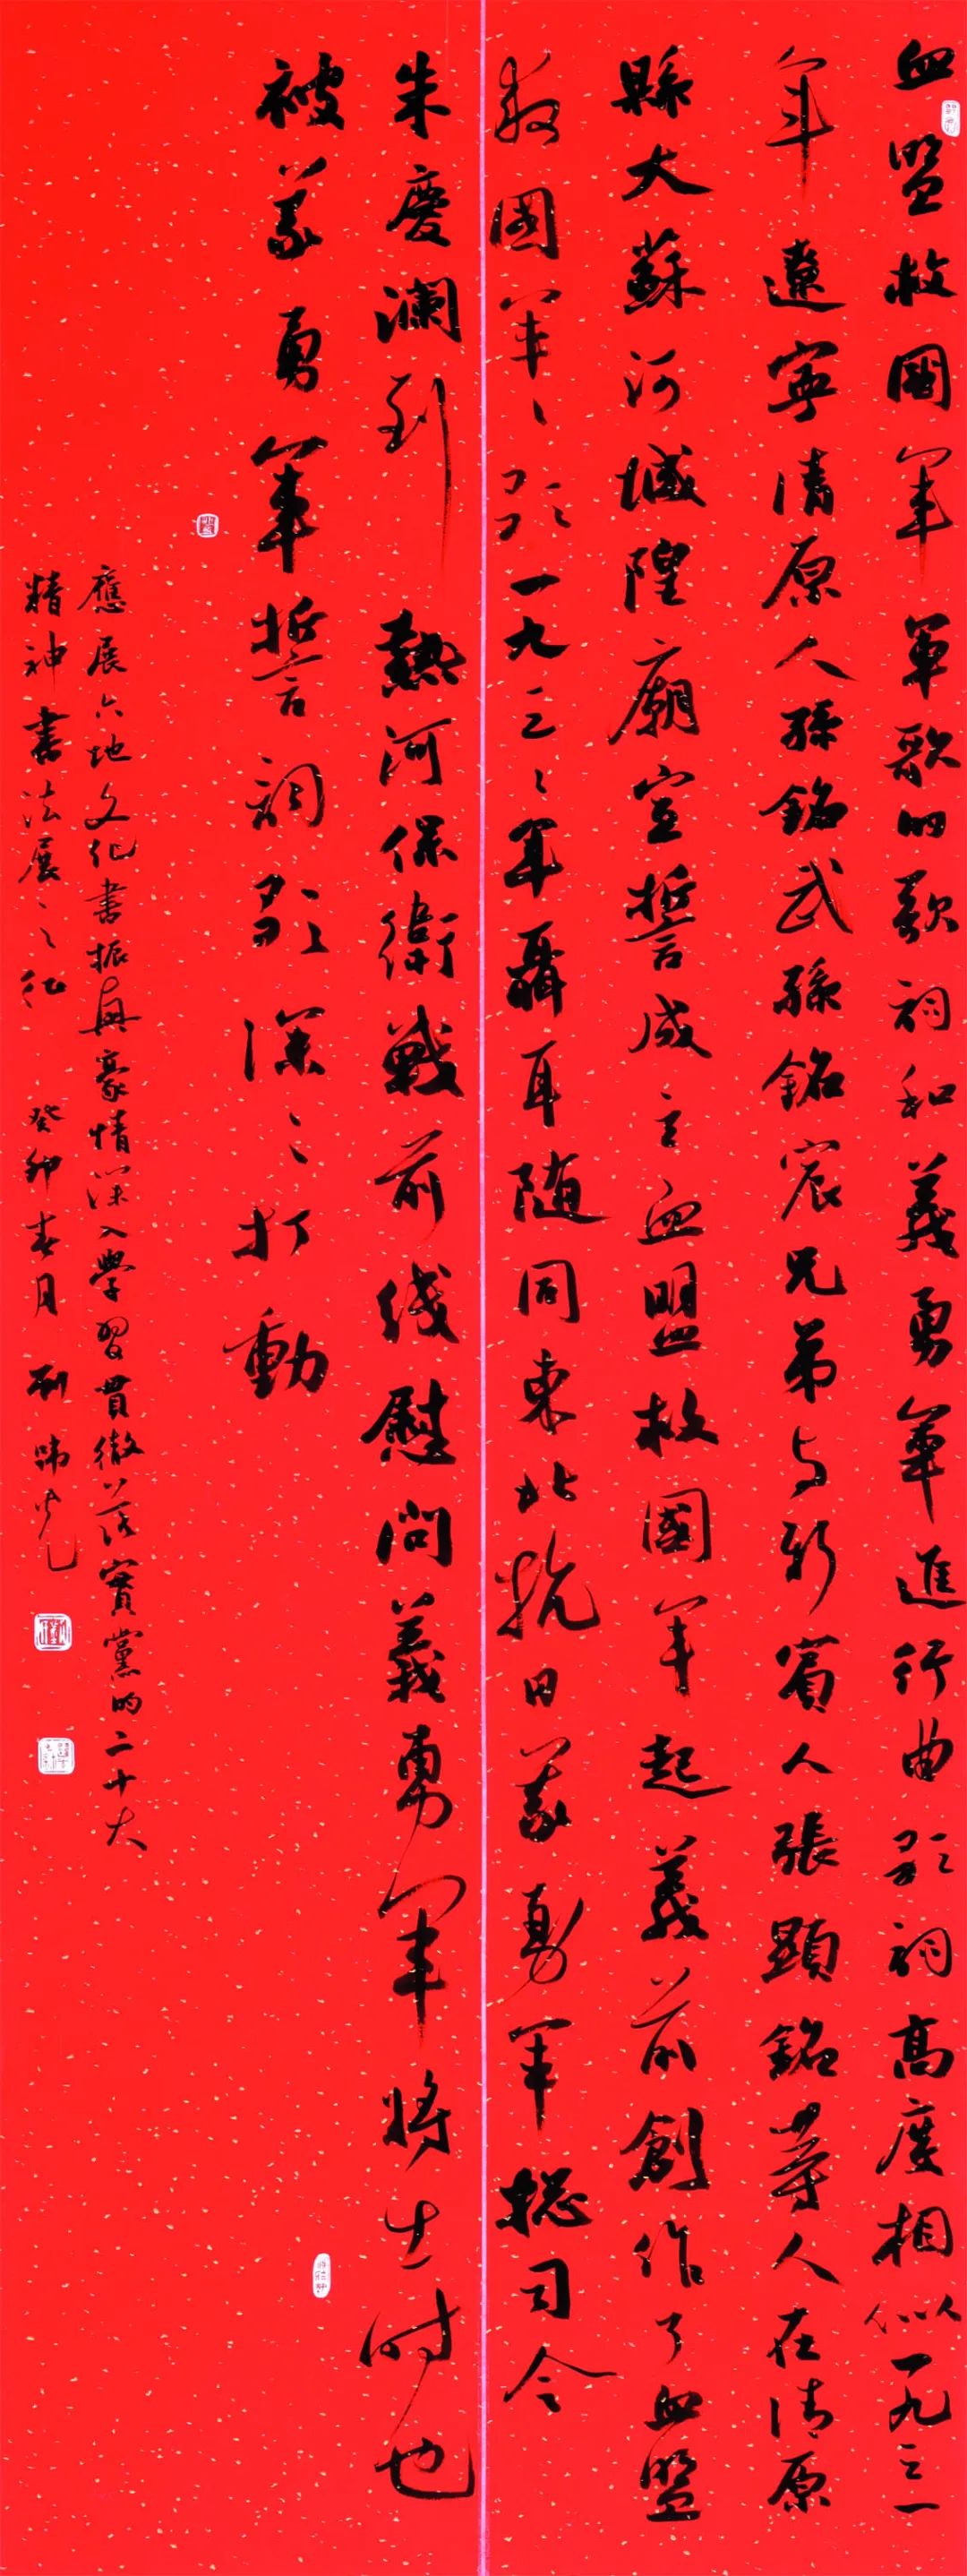 血盟救國軍軍歌的歌詞和義勇軍進行曲歌詞高度相似一九三一
年遼寧清原人孫銘武孫銘宸兄弟与新賓人張顯銘等人在清原
縣大蘇河城隍廟宣誓成立血盟救國軍起義前創作了血盟
救國軍軍歌一九三三年聶耳随同東北抗日義勇軍総司令
朱慶瀾到熱河保衛戰前线慰問義勇軍將士時也
被義勇軍誓詞歌深深打動
應展六地文化書振興豪情深入學習貫徹落實黨的二十大
精神書法展之征 癸卯春月 刘